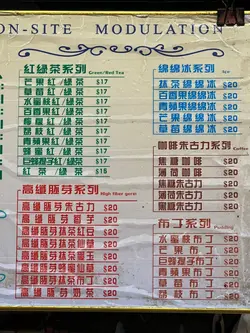 ON-SITE MODULATION
紅綠茶系列 Green/Red Tea
芒果紅/綠茶 $17
草莓紅/綠茶 $17
水蜜桃紅/綠茶 $17
百香果紅/綠茶 $17
青檬紅/綠茶 $17
荔枝紅/綠茶 $17
青蘋果紅/綠茶 $17
蜂蜜紅/綠茶 $17
巨峰葡子紅/綠茶 $17
紅茶/綠茶 $15
高纖胚芽系列 High fiber germ
高纖胚芽朱古力 $20
高纖胚芽香芋 $20
高纖胚芽抹茶紅豆 $20
高纖胚芽抹茶仙草 $20
高纖胚芽抹茶蜜玉 $20
高纖胚芽仙草 $20
高纖胚芽抹茶布丁 $20
高纖胚芽奶茶 $20
綿綿冰系列 Ice
抹茶綿綿冰 $20
百香果綿綿冰 $20
芒果綿綿冰 $20
草莓綿綿冰 $20
咖啡朱古力系列 Coffee
焦糖咖啡 $20
薄荷咖啡 $20
焦糖朱古力 $20
薄荷朱古力 $20
黑糖朱古力 $20
布丁系列 Pudding
水蜜桃布丁 $20
芒果布丁 $20
巨峰葡子布丁 $20
青蘋果布丁 $20
草莓布丁 $20
荔枝布丁 $20